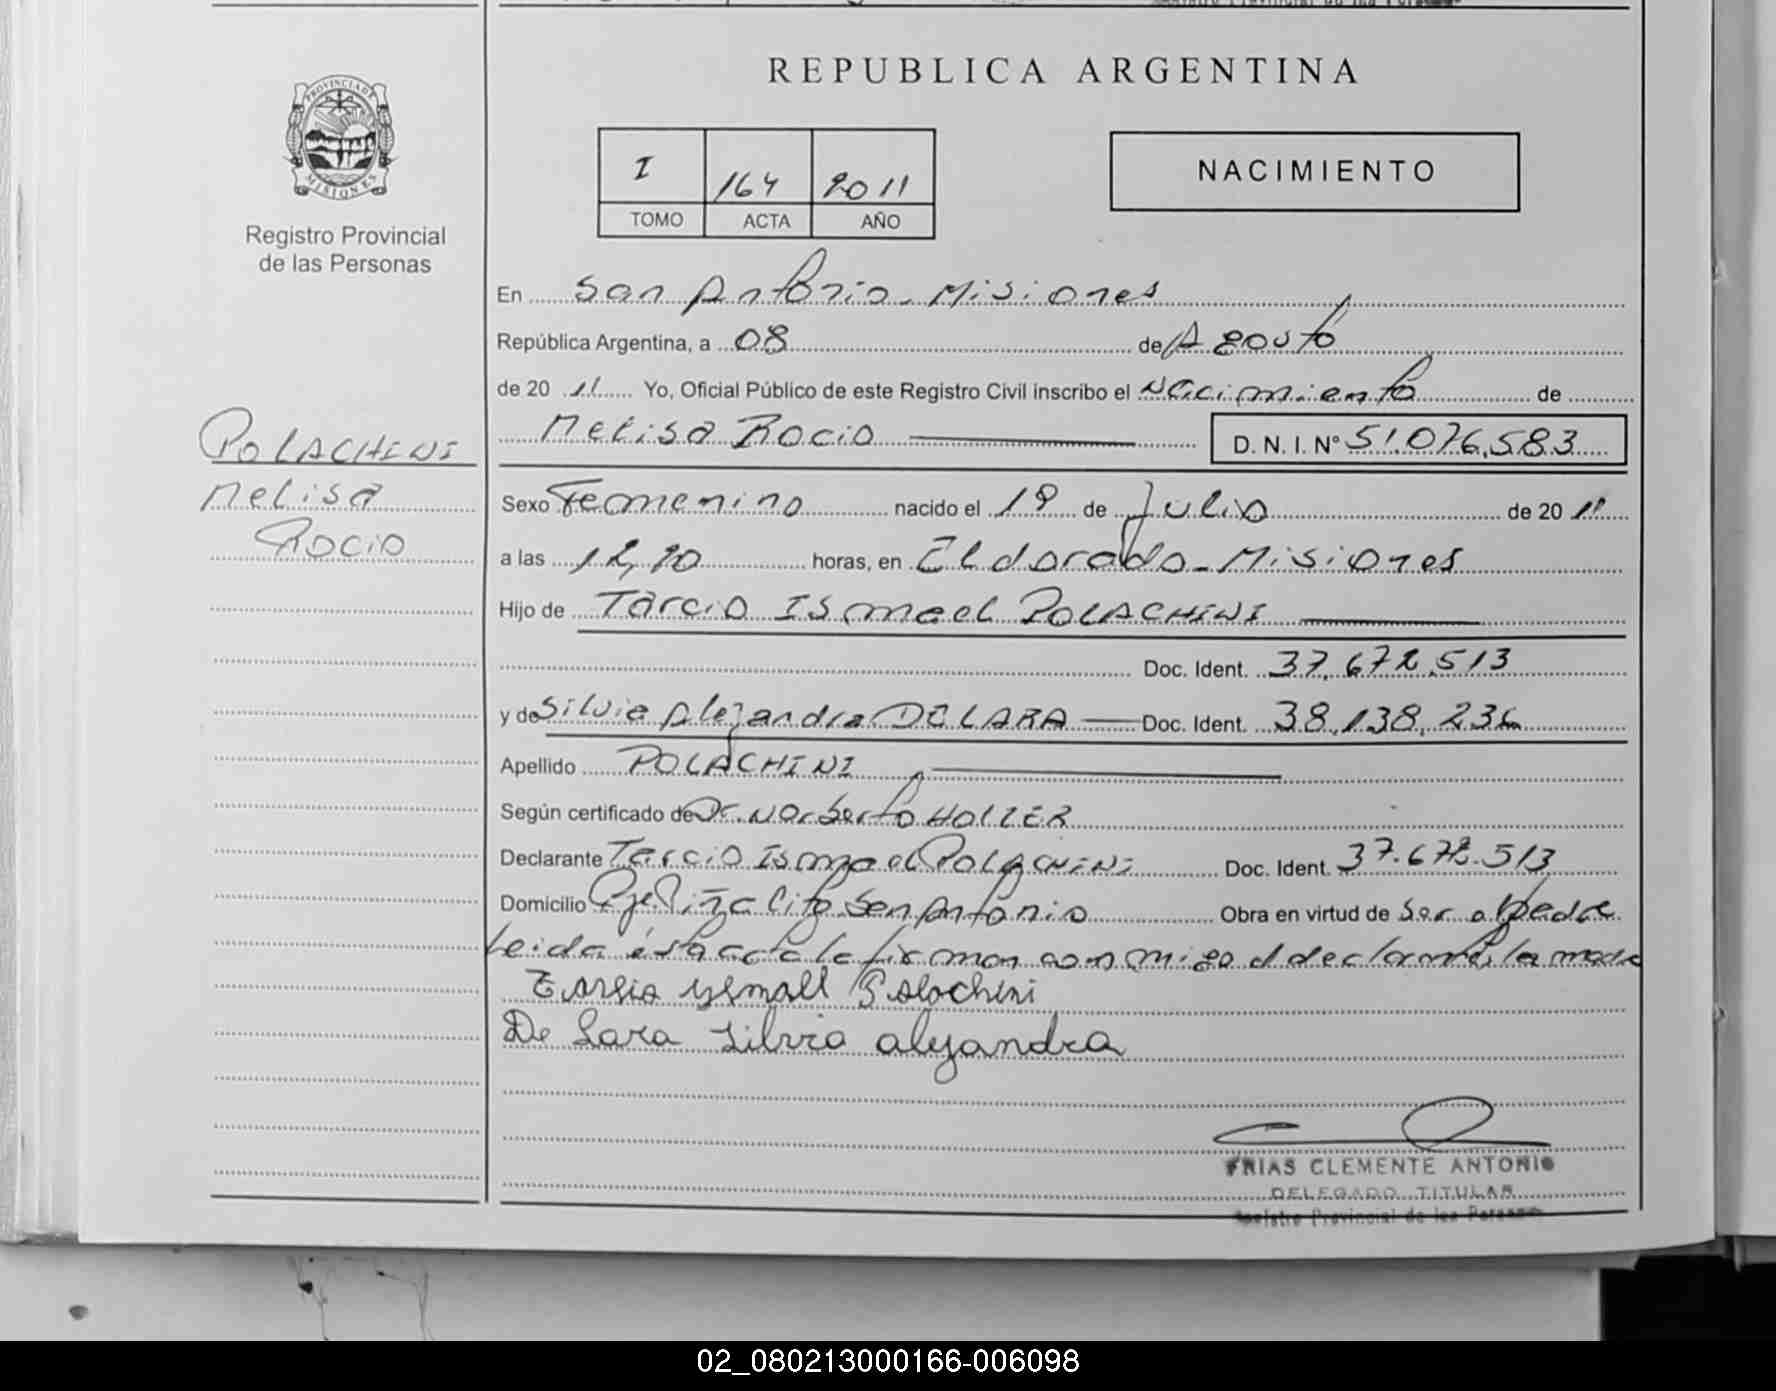 REPUBLICA ARGENTINA
PROVINCIA DE MISIONES
Registro Provincial
de las Personas
I 164 2011
TOMO ACTA AÑO
NACIMIENTO
En San Antonio - Misiones
República Argentina, a 08 de Agosto
de 20 11 Yo, Oficial Público de este Registro Civil inscribo el Nacimiento de
Melisa Rocio D. N. I. Nº 51.076.583
POLACHINI
Melisa
Rocio
Sexo Femenino nacido el 19 de Julio de 20 11
a las horas, en Eldorado - Misiones
Hijo de Tarcio Ismael POLACHINI
Doc. Ident. 37.672.513
y de Silvia Alejandra DE LARA Doc. Ident. 38.138.236
Apellido POLACHINI
Según certificado de Dr. Norberto HOLZER
Declarante Tarcio Ismael POLACHINI Doc. Ident. 37.672.513
Domicilio Piñalito San Antonio Obra en virtud de Ser el Padre
Leida ésta acta la firman conmigo el declarante, la madre
Tarsio ysmall Polachini
De Lara Silvia alejandra
FRIAS CLEMENTE ANTONIO
DELEGADO TITULAR
Registro Provincial de las Personas
02_080213000166-006098